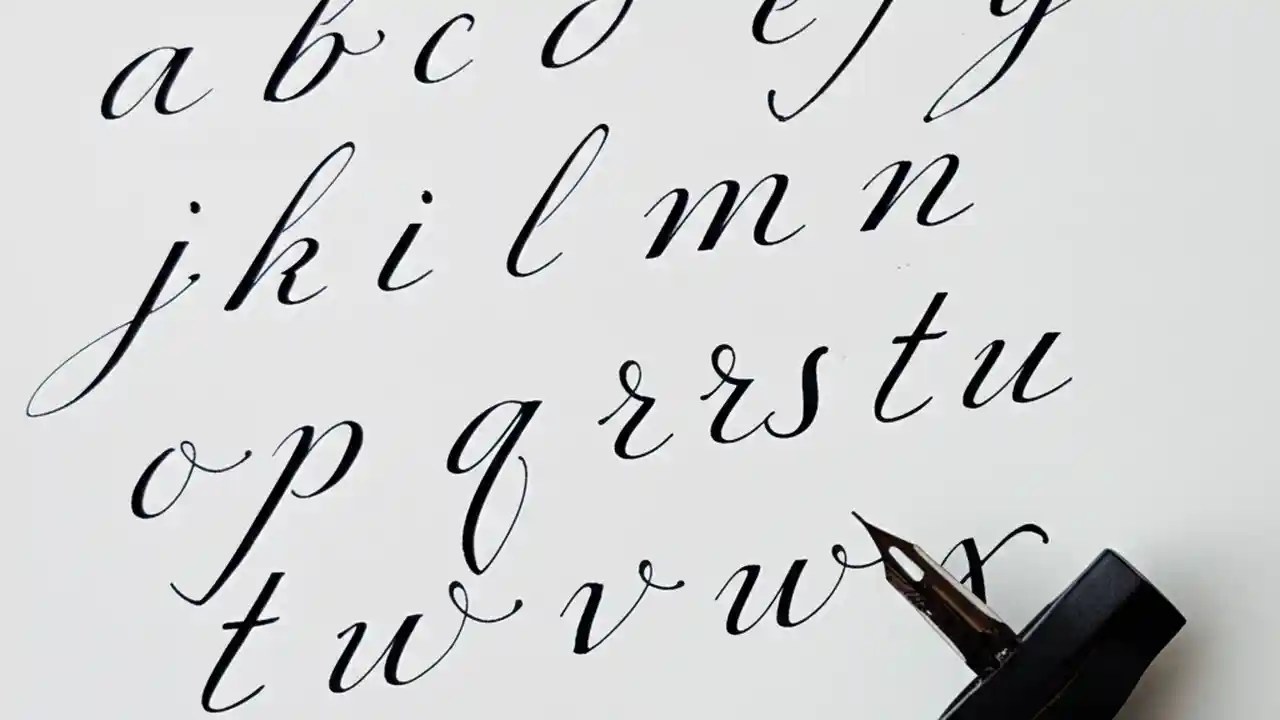 a b c d e f g
j k i l m n
o p q r r s t u
t w v w x